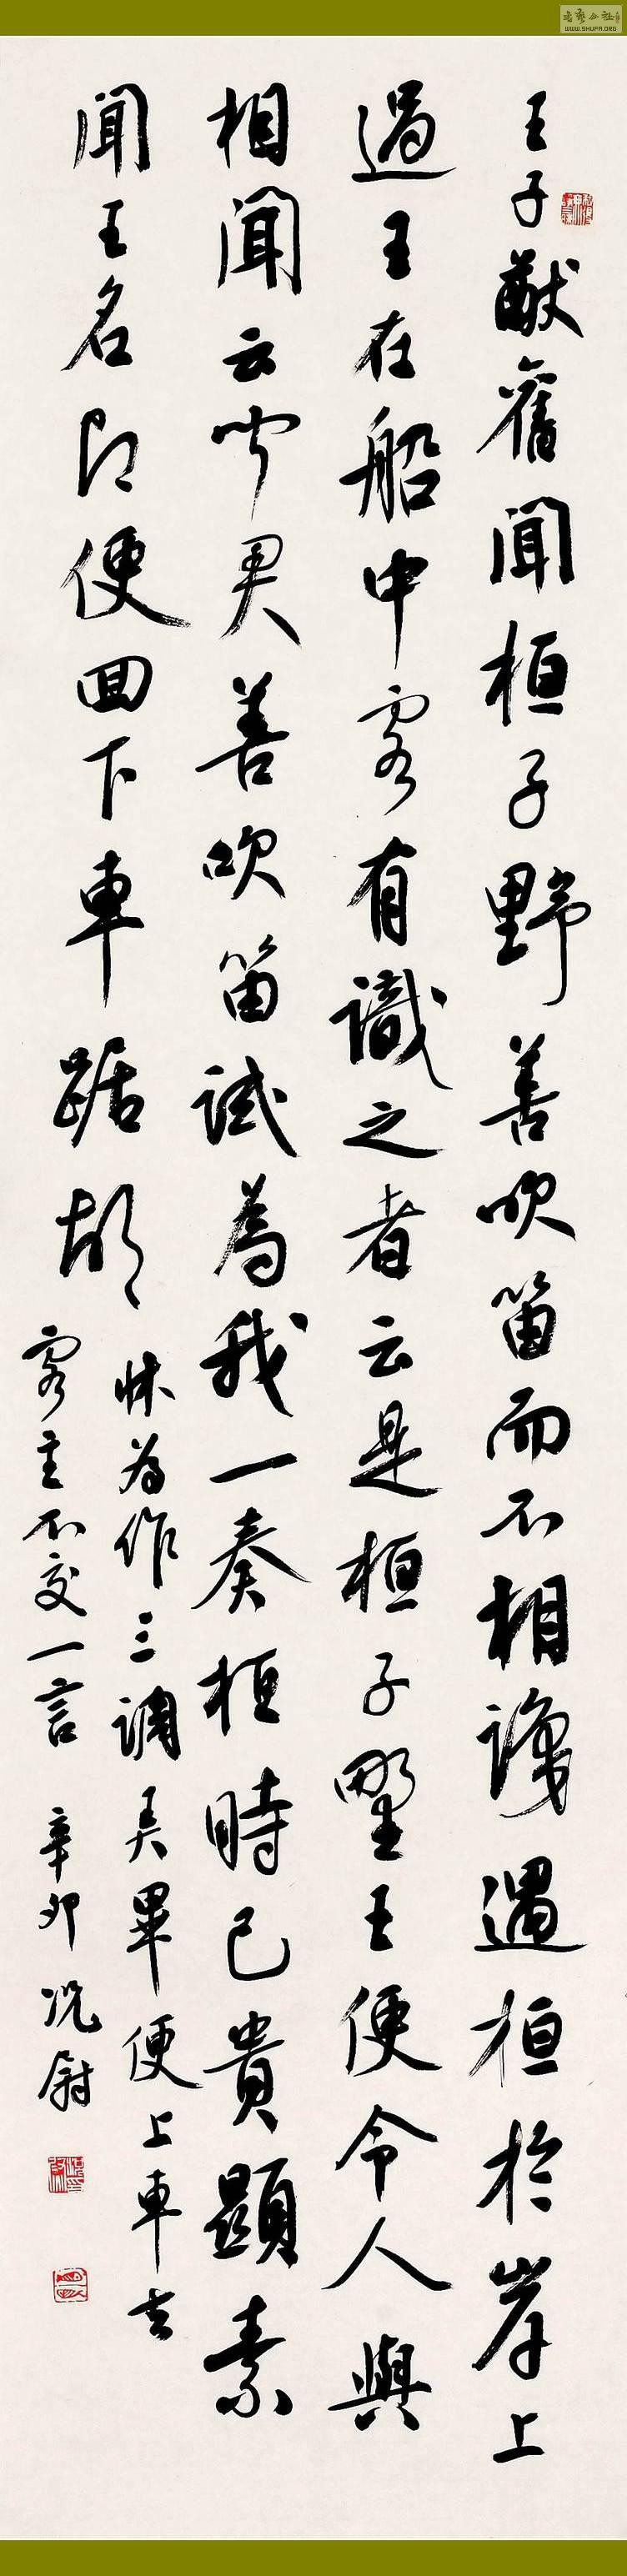 王子猷舊聞桓子野善吹笛而不相識遇桓於岸上
過王在船中客有識之者云是桓子野王便令人與
相聞云聞君善吹笛試為我一奏桓時已貴顯素
聞王名即便回下車踞胡
牀為作三調弄畢便上車去
客主不交一言 辛卯 況尉
WWW.SHUFA.ORG